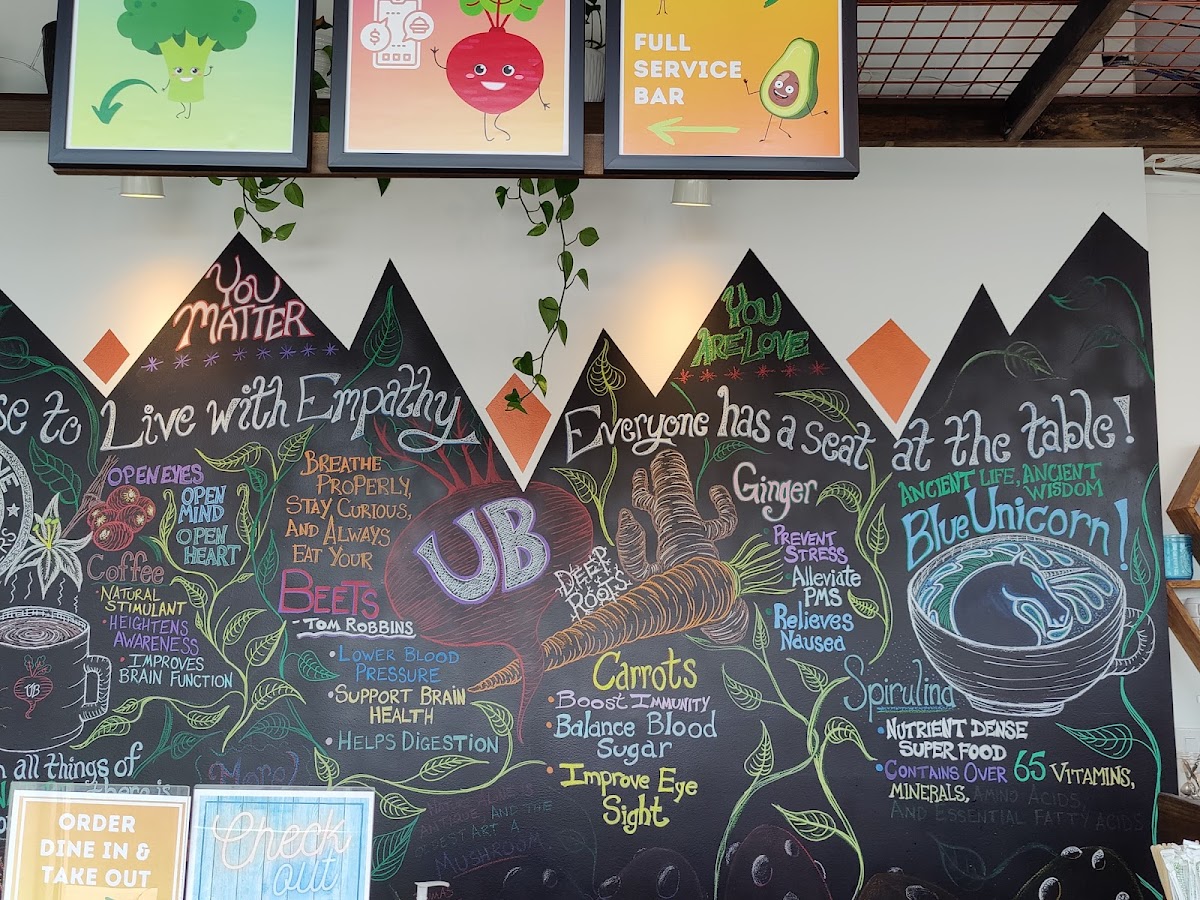 FULL
SERVICE
BAR
YOU
MATTER
YOU
ARE LOVE
se to Live with Empathy
Everyone has a seat at the table!
OPEN EYES
OPEN
MIND
OPEN
HEART
Coffee
• NATURAL
STIMULANT
• HEIGHTENS
AWARENESS
• IMPROVES
BRAIN FUNCTION
UB
BREATHE
PROPERLY,
STAY CURIOUS,
AND ALWAYS
EAT YOUR
BEETS
- TOM ROBBINS
• LOWER BLOOD
PRESSURE
• SUPPORT BRAIN
HEALTH
• HELPS DIGESTION
UB
DEEP
ROOTS
Carrots
• BOOST IMMUNITY
• Balance Blood
Sugar
• Improve Eye
Sight
Ginger
• PREVENT
STRESS
• Alleviate
PMS
• Relieves
Nausea
ANCIENT LIFE, ANCIENT
WISDOM
Blue Unicorn!
Spirulina
• NUTRIENT DENSE
SUPER FOOD
• CONTAINS OVER 65 VITAMINS,
MINERALS, AMINO ACIDS
AND ESSENTIAL FATTY ACIDS
all things of
there is
More
AND THE
START A
MUSHROOM
ORDER
DINE IN &
TAKE OUT
Check
out